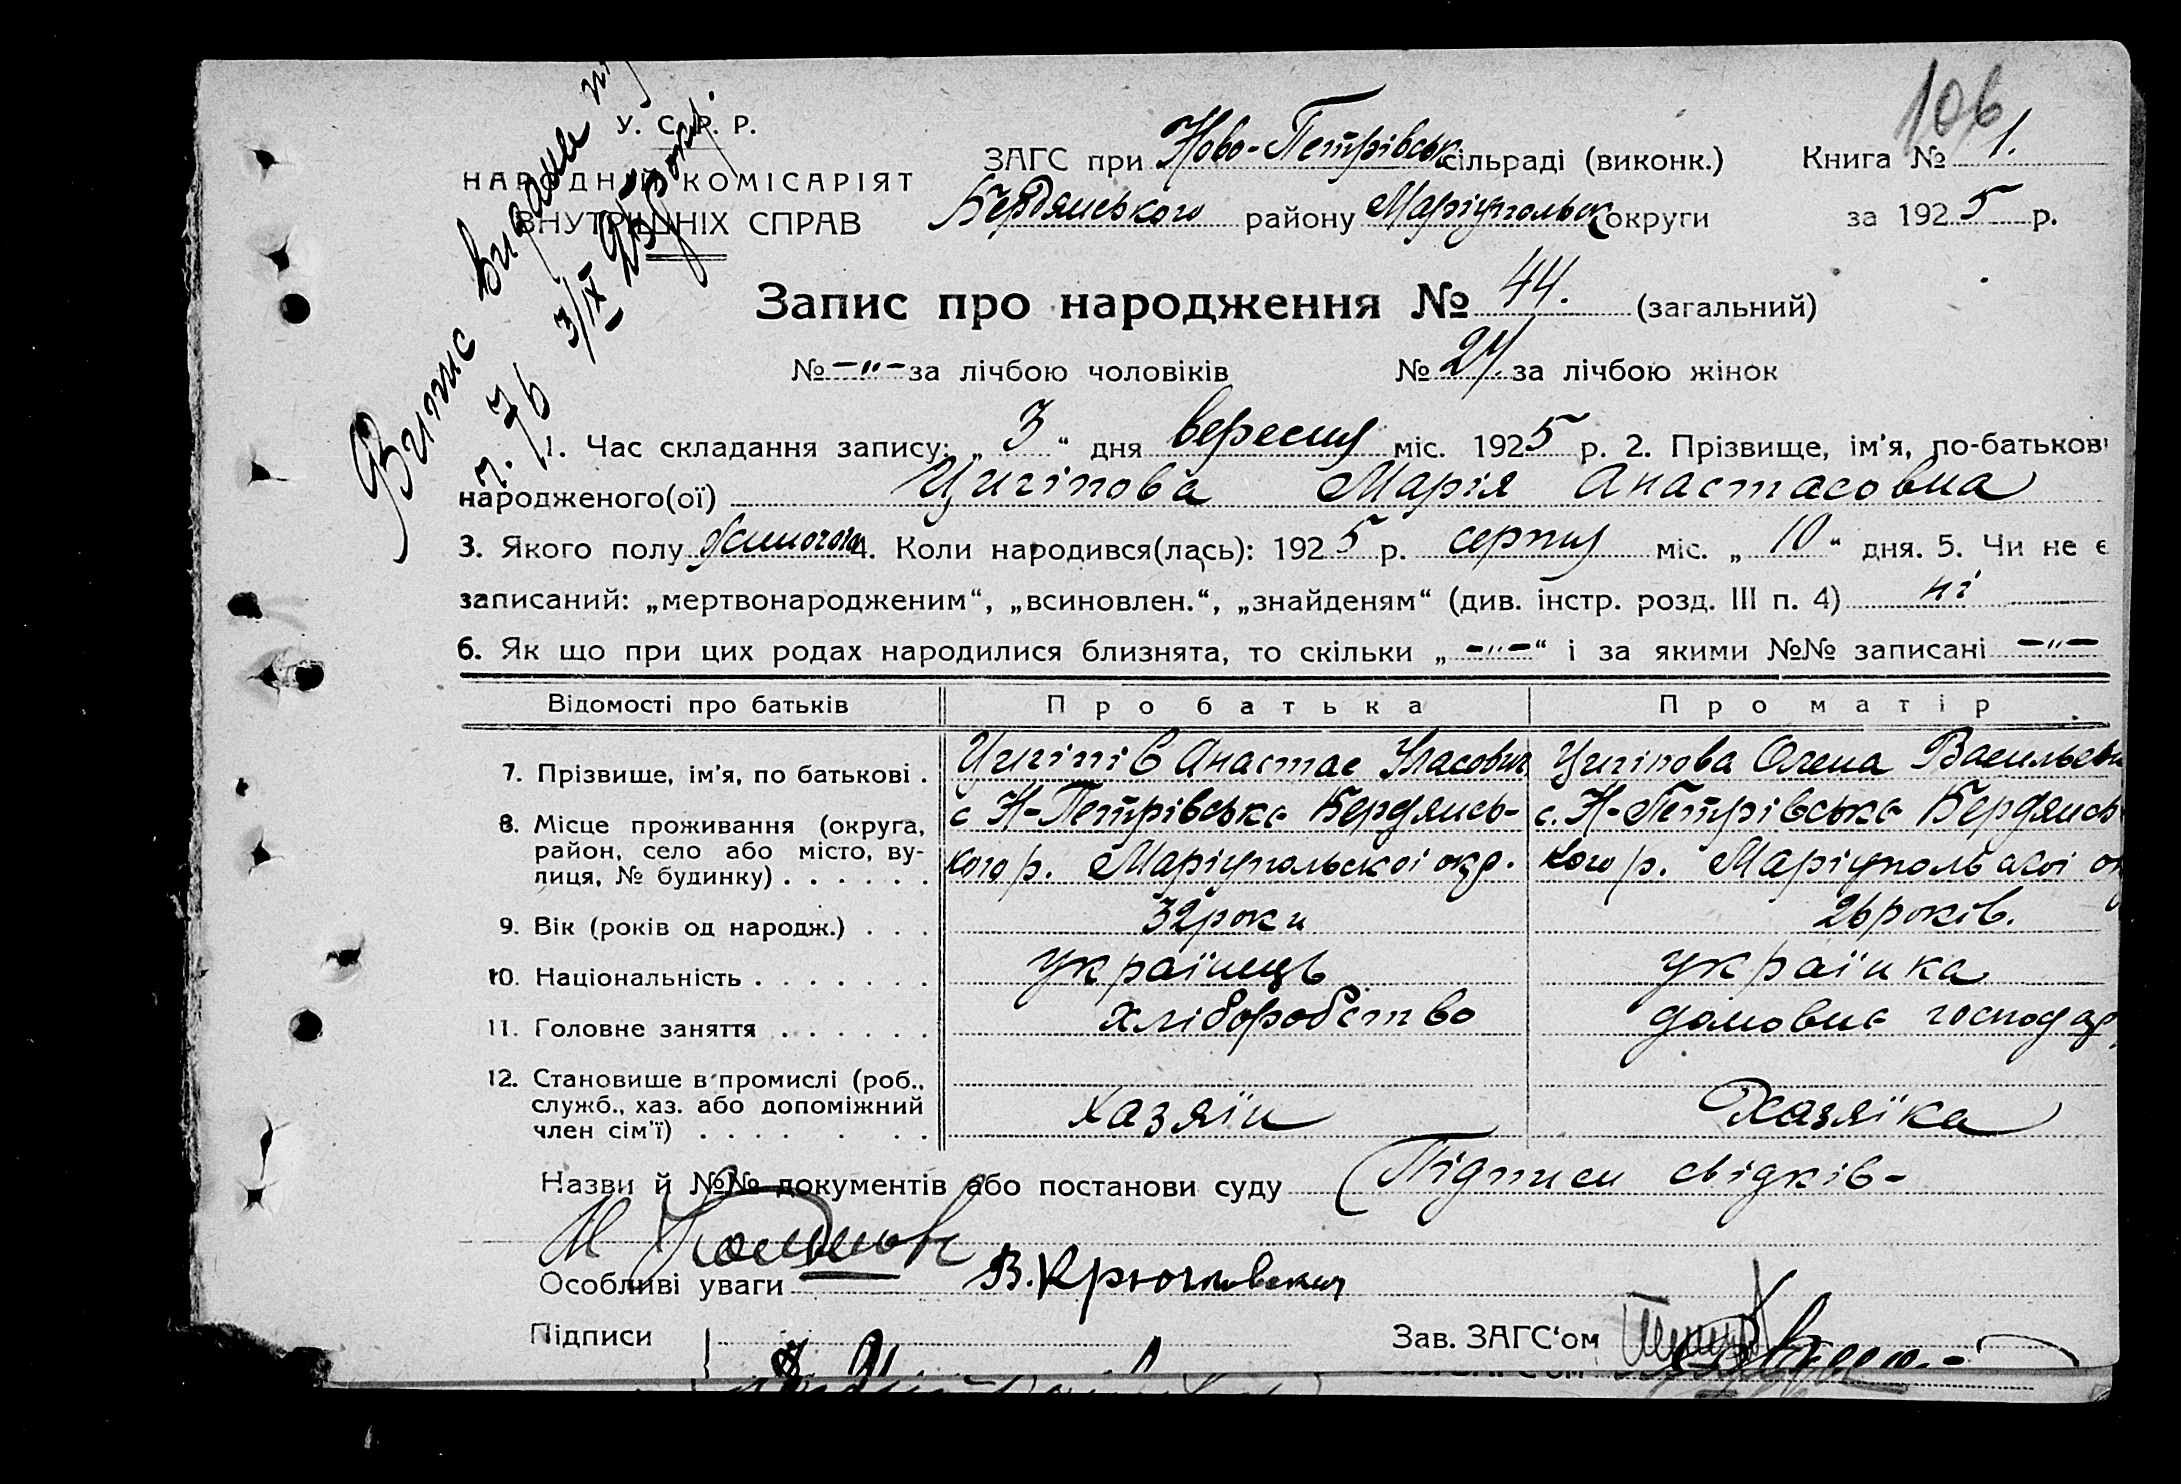 106
У. С. Р. Р.
НАРОДНИЙ КОМІСАРІЯТ
ВНУТРІШНІХ СПРАВ
Випис видане
ч. 76 3/IX 25 року.
ЗАГС при Ново-Петрівськ сільраді (виконк.) Книга № 1.
Бердянського району Маріупольськ округи за 1925 р.
Запис про народження № 44. (загальний)
№ -"- за лічбою чоловіків № 24. за лічбою жінок
1. Час складання запису: „ 3 " дня вересня міс. 1925 р. 2. Прізвище, ім'я, по-батькові
народженого(ої) Цигіпова Марія Анастасовна
3. Якого полу жиночого 4. Коли народився(лась): 1925 р. серпня міс. „ 10 " дня. 5. Чи не є
записаний: „мертвонародженим", „всиновлен.", „знайденям" (див. інстр. розд. III п. 4) ні
6. Як що при цих родах народилися близнята, то скільки „ -"- " і за якими №№ записані -"-
Відомості про батьків Про батька Про матір
7. Прізвище, ім'я, по батькові . Цигіпів Анастас Уласович Цигіпова Олена Васильевн
8. Місце проживання (округа, район, село або місто, вулиця, № будинку) . . . . . . с Н-Петрівська Бердянського р. Маріупольскоі окр. с. Н-Петрівська Бердянського р. Маріупольскоі ок
9. Вік (років од народж.) . . . 32 роки 26 років.
10. Національність . . . . . . . українець українка
11. Головне заняття . . . . . . хліборобство домовне господар
12. Становище в промислі (роб., служб., хаз. або допоміжний член сім'ї) . . . . . . . хазяїн Хазяїка
Назви й №№ документів або постанови суду Підписи свідків-
Особливі уваги В. Крючковский
Підписи Зав. ЗАГС'ом